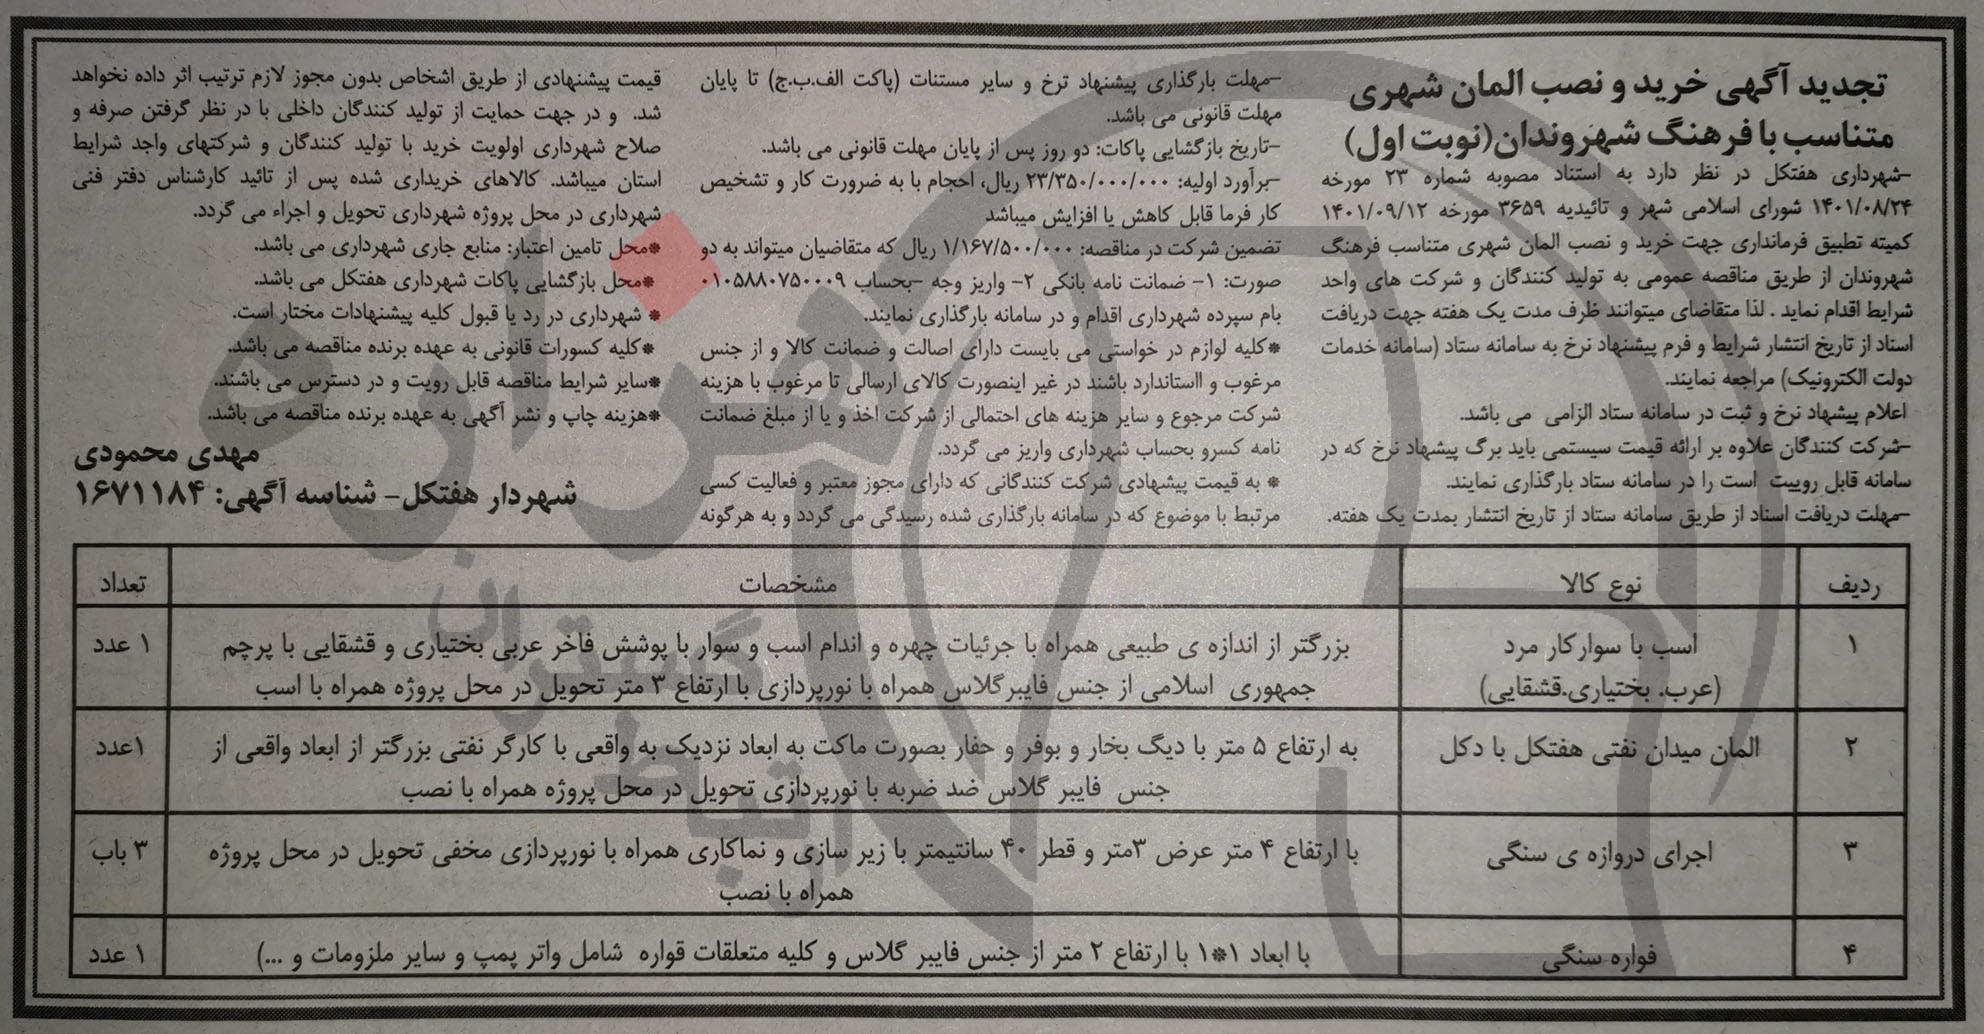 تجدید آگهی خرید و نصب المان شهری
متناسب با فرهنگ شهروندان(نوبت اول)
-شهرداری هفتکل در نظر دارد به استناد مصوبه شماره ۲۳ مورخه
۱۴۰۱/۰۸/۲۴ شورای اسلامی شهر و تائیدیه ۳۶۵۹ مورخه ۱۴۰۱/۰۹/۱۲
کمیته تطبیق فرمانداری جهت خرید و نصب المان شهری متناسب فرهنگ
شهروندان از طریق مناقصه عمومی به تولید کنندگان و شرکت های واحد
شرایط اقدام نماید . لذا متقاضای میتوانند ظرف مدت یک هفته جهت دریافت
اسناد از تاریخ انتشار شرایط و فرم پیشنهاد نرخ به سامانه ستاد (سامانه خدمات
دولت الکترونیک) مراجعه نمایند.
اعلام پیشنهاد نرخ و ثبت در سامانه ستاد الزامی می باشد.
-شرکت کنندگان علاوه بر ارائه قیمت سیستمی باید برگ پیشنهاد نرخ که در
سامانه قابل روییت است را در سامانه ستاد بارگذاری نمایند.
-مهلت دریافت اسناد از طریق سامانه ستاد از تاریخ انتشار بمدت یک هفته.
-مهلت بارگذاری پیشنهاد نرخ و سایر مستنات (پاکت الف.ب.ج) تا پایان
مهلت قانونی می باشد.
-تاریخ بازگشایی پاکات: دو روز پس از پایان مهلت قانونی می باشد.
-برآورد اولیه: ۲۳/۳۵۰/۰۰۰/۰۰۰ ریال، احجام با به ضرورت کار و تشخیص
کار فرما قابل کاهش یا افزایش میباشد
تضمین شرکت در مناقصه: ۱/۱۶۷/۵۰۰/۰۰۰ ریال که متقاضیان میتواند به دو
صورت: ۱- ضمانت نامه بانکی ۲- واریز وجه -بحساب ۰۱۰۵۸۸۰۷۵۰۰۰۹
بام سپرده شهرداری اقدام و در سامانه بارگذاری نمایند.
*کلیه لوازم در خواستی می بایست دارای اصالت و ضمانت کالا و از جنس
مرغوب و ااستاندارد باشند در غیر اینصورت کالای ارسالی تا مرغوب با هزینه
شرکت مرجوع و سایر هزینه های احتمالی از شرکت اخذ و یا از مبلغ ضمانت
نامه کسرو بحساب شهرداری واریز می گردد.
* به قیمت پیشنهادی شرکت کنندگانی که دارای مجوز معتبر و فعالیت کسی
مرتبط با موضوع که در سامانه بارگذاری شده رسیدگی می گردد و به هرگونه
قیمت پیشنهادی از طریق اشخاص بدون مجوز لازم ترتیب اثر داده نخواهد
شد. و در جهت حمایت از تولید کنندگان داخلی با در نظر گرفتن صرفه و
صلاح شهرداری اولویت خرید با تولید کنندگان و شرکتهای واجد شرایط
استان میباشد. کالاهای خریداری شده پس از تائید کارشناس دفتر فنی
شهرداری در محل پروژه شهرداری تحویل و اجراء می گردد.
*محل تامین اعتبار: منابع جاری شهرداری می باشد.
*محل بازگشایی پاکات شهرداری هفتکل می باشد.
* شهرداری در رد یا قبول کلیه پیشنهادات مختار است.
*کلیه کسورات قانونی به عهده برنده مناقصه می باشد.
*سایر شرایط مناقصه قابل رویت و در دسترس می باشند.
*هزینه چاپ و نشر آگهی به عهده برنده مناقصه می باشد.
مهدی محمودی
شهردار هفتکل- شناسه آگهی: ۱۶۷۱۱۸۴
ردیف نوع کالا مشخصات تعداد
۱ اسب با سوارکار مرد بزرگتر از اندازه ی طبیعی همراه با جزئیات چهره و اندام اسب و سوار با پوشش فاخر عربی بختیاری و قشقایی با پرچم ۱ عدد
(عرب. بختیاری.قشقایی) جمهوری اسلامی از جنس فایبرگلاس همراه با نورپردازی با ارتفاع ۳ متر تحویل در محل پروژه همراه با اسب
۲ المان میدان نفتی هفتکل با دکل به ارتفاع ۵ متر با دیگ بخار و بوفر و حفار بصورت ماکت به ابعاد نزدیک به واقعی با کارگر نفتی بزرگتر از ابعاد واقعی از ۱عدد
جنس فایبر گلاس ضد ضربه با نورپردازی تحویل در محل پروژه همراه با نصب
۳ اجرای دروازه ی سنگی با ارتفاع ۴ متر عرض ۳متر و قطر ۴۰ سانتیمتر با زیر سازی و نماکاری همراه با نورپردازی مخفی تحویل در محل پروژه ۳ باب
همراه با نصب
۴ فواره سنگی با ابعاد ۱*۱ با ارتفاع ۲ متر از جنس فایبر گلاس و کلیه متعلقات قواره شامل واتر پمپ و سایر ملزومات و ...) ۱ عدد